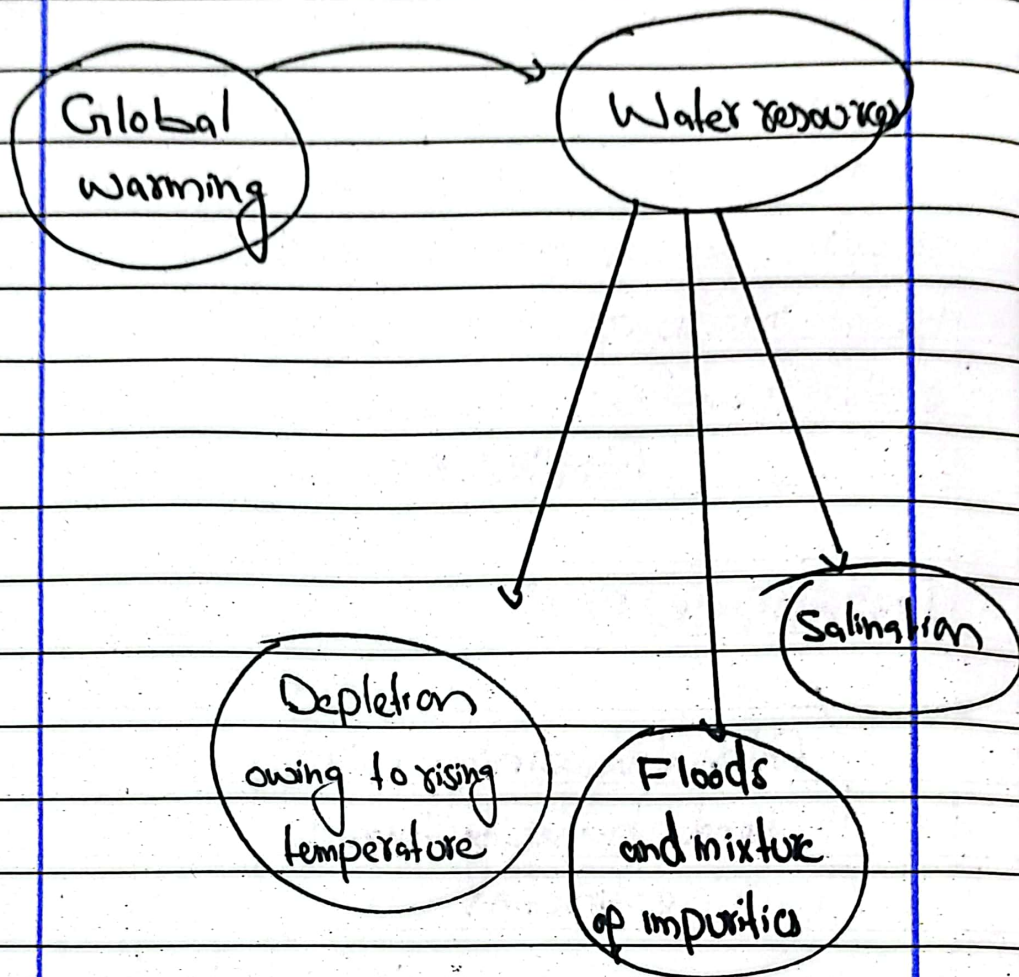 Global
warming
Water resources
Depletion
owing to rising
temperature
Floods
and mixture
of impurities
Salination